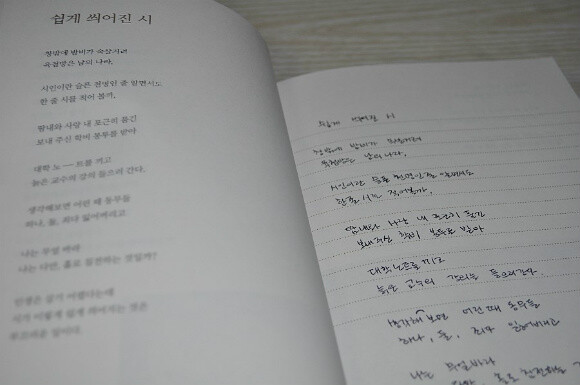 쉽게 씌어진 시
창밖에 밤비가 속살거려
육첩방은 남의 나라,
시인이란 슬픈 천명인 줄 알면서도
한 줄 시를 적어 볼까,
땀내와 사랑 내 포근히 품긴
보내 주신 학비 봉투를 받아
대학 노―트를 끼고
늙은 교수의 강의 들으러 간다.
생각해보면 어린 때 동무를
하나, 둘, 죄다 잃어버리고
나는 무얼 바라
나는 다만, 홀로 침전하는 것일까?
인생은 살기 어렵다는데
시가 이렇게 쉽게 씌어지는 것은
부끄러운 일이다.
쉽게 씌어진 시
창밖에 밤비가 속살거려
육첩방은 남의 나라,
시인이란 슬픈 천명인줄 알면서도
한줄 시를 적어볼까,
땀내와 사랑 내 포근히 품긴
보내주신 학비 봉투를 받아
대학노트를 끼고
늙은 교수의 강의를 들으러간다
생각해 보면 어린 때 동무를
하나, 둘, 죄다 잃어버리고
나는 무얼바라
홀로 침전하는